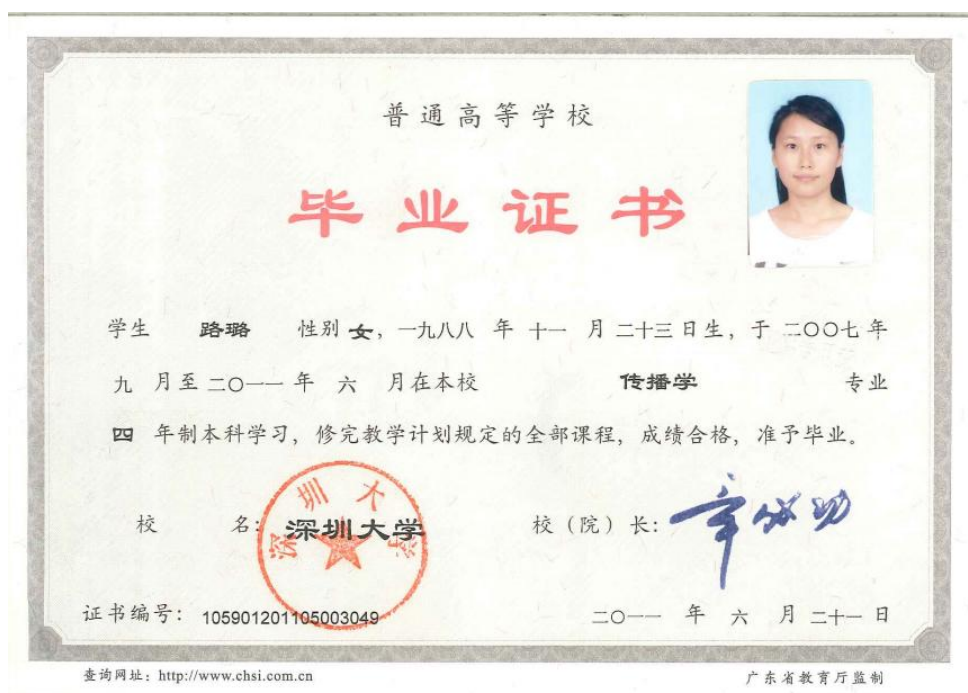 普通高等学校
毕业证书
学生 路璐 性别 女, 一九八八 年 十一 月 二十三 日生, 于 二〇〇七 年
九 月至 二〇一一 年 六 月在本校 传播学 专业
四 年制本科学习, 修完教学计划规定的全部课程, 成绩合格, 准予毕业。
深圳大学
校 名: 深圳大学 校(院)长: 章必功
证书编号: 105901201105003049 二〇一一 年 六 月 二十一 日
查询网址: http://www.chsi.com.cn 广东省教育厅监制